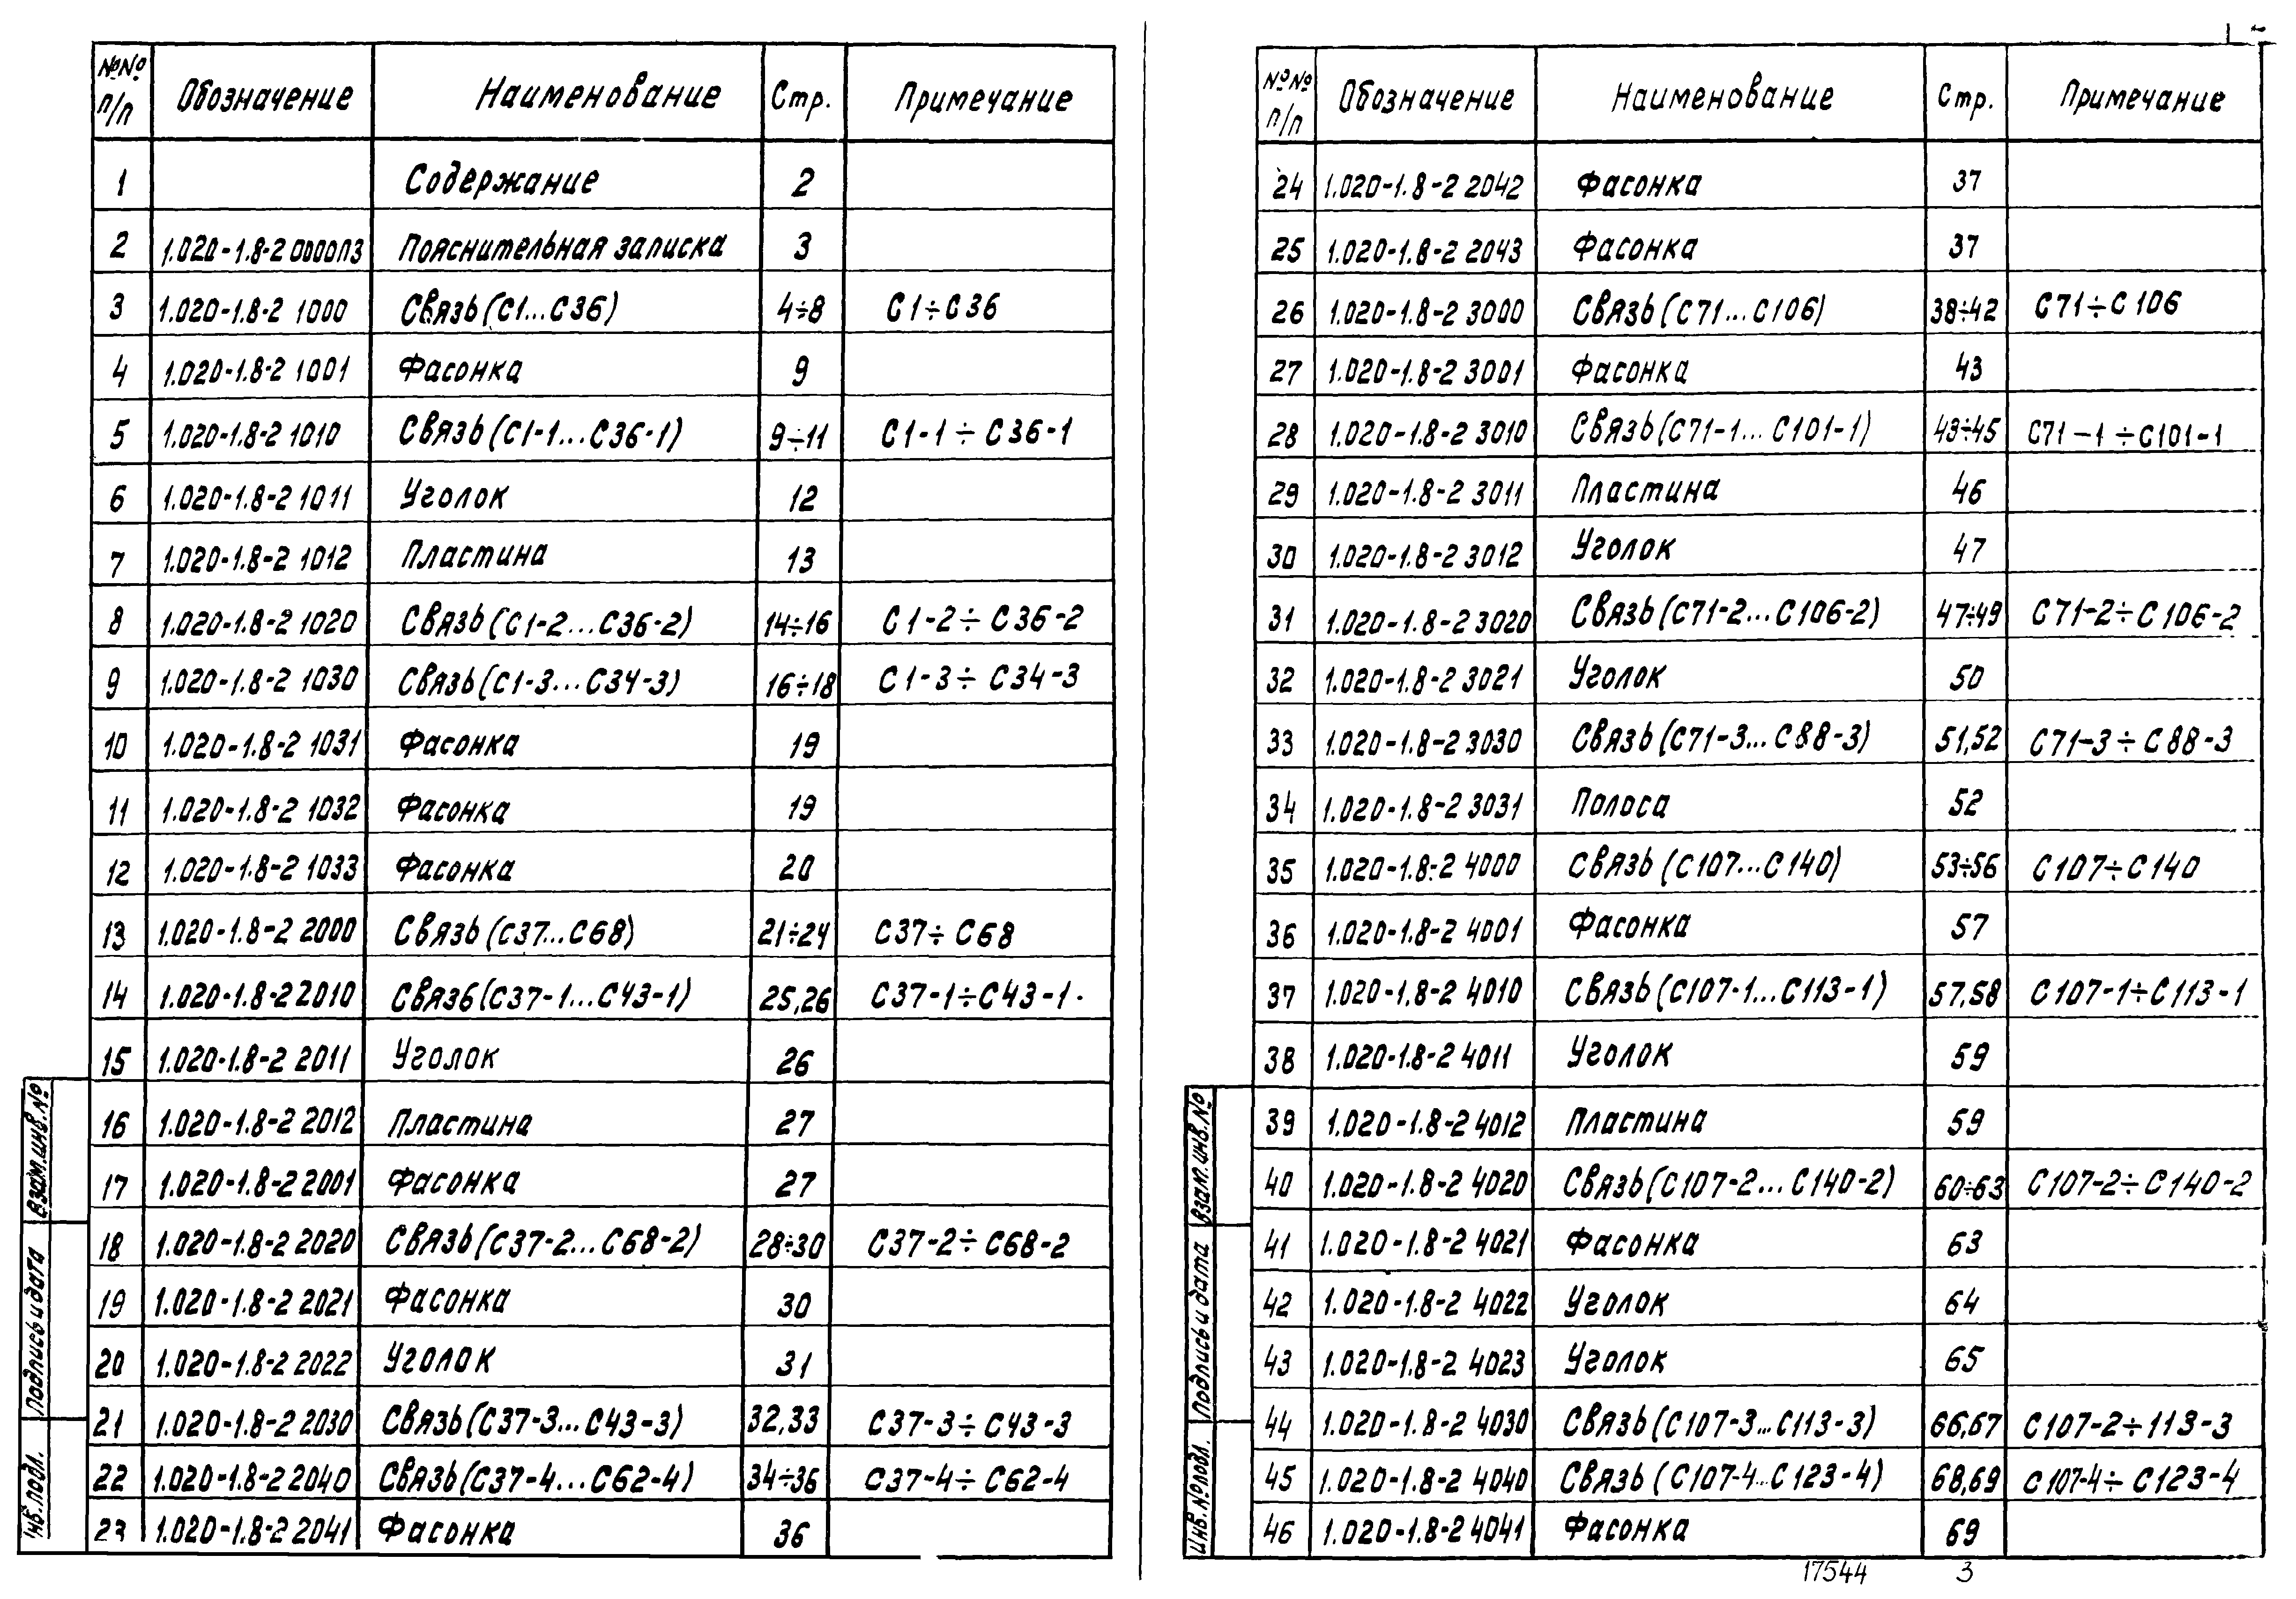 №№ п/п Обозначение Наименование Стр. Примечание
1 Содержание 2
2 1.020-1.8-2 0000ПЗ Пояснительная записка 3
3 1.020-1.8-2 1000 Связь (С1...С36) 4÷8 С1÷С36
4 1.020-1.8-2 1001 Фасонка 9
5 1.020-1.8-2 1010 Связь (С1-1...С36-1) 9÷11 С1-1÷С36-1
6 1.020-1.8-2 1011 Уголок 12
7 1.020-1.8-2 1012 Пластина 13
8 1.020-1.8-2 1020 Связь (С1-2...С36-2) 14÷16 С1-2÷С36-2
9 1.020-1.8-2 1030 Связь (С1-3...С34-3) 16÷18 С1-3÷С34-3
10 1.020-1.8-2 1031 Фасонка 19
11 1.020-1.8-2 1032 Фасонка 19
12 1.020-1.8-2 1033 Фасонка 20
13 1.020-1.8-2 2000 Связь (С37...С68) 21÷24 С37÷С68
14 1.020-1.8-2 2010 Связь (С37-1...С43-1) 25,26 С37-1÷С43-1
15 1.020-1.8-2 2011 Уголок 26
16 1.020-1.8-2 2012 Пластина 27
17 1.020-1.8-2 2001 Фасонка 27
18 1.020-1.8-2 2020 Связь (С37-2...С68-2) 28÷30 С37-2÷С68-2
19 1.020-1.8-2 2021 Фасонка 30
20 1.020-1.8-2 2022 Уголок 31
21 1.020-1.8-2 2030 Связь (С37-3...С43-3) 32,33 С37-3÷С43-3
22 1.020-1.8-2 2040 Связь (С37-4...С62-4) 34÷36 С37-4÷С62-4
23 1.020-1.8-2 2041 Фасонка 36
Взам.инв.№
Подпись и дата
Инв.подл.
№№ п/п Обозначение Наименование Стр. Примечание
24 1.020-1.8-2 2042 Фасонка 37
25 1.020-1.8-2 2043 Фасонка 37
26 1.020-1.8-2 3000 Связь (С71...С106) 38÷42 С71÷С106
27 1.020-1.8-2 3001 Фасонка 43
28 1.020-1.8-2 3010 Связь (С71-1...С101-1) 43÷45 С71-1÷С101-1
29 1.020-1.8-2 3011 Пластина 46
30 1.020-1.8-2 3012 Уголок 47
31 1.020-1.8-2 3020 Связь (С71-2...С106-2) 47÷49 С71-2÷С106-2
32 1.020-1.8-2 3021 Уголок 50
33 1.020-1.8-2 3030 Связь (С71-3...С88-3) 51,52 С71-3÷С88-3
34 1.020-1.8-2 3031 Полоса 52
35 1.020-1.8-2 4000 Связь (С107...С140) 53÷56 С107÷С140
36 1.020-1.8-2 4001 Фасонка 57
37 1.020-1.8-2 4010 Связь (С107-1...С113-1) 57,58 С107-1÷С113-1
38 1.020-1.8-2 4011 Уголок 59
39 1.020-1.8-2 4012 Пластина 59
40 1.020-1.8-2 4020 Связь (С107-2...С140-2) 60÷63 С107-2÷С140-2
41 1.020-1.8-2 4021 Фасонка 63
42 1.020-1.8-2 4022 Уголок 64
43 1.020-1.8-2 4023 Уголок 65
44 1.020-1.8-2 4030 Связь (С107-3...С113-3) 66,67 С107-2÷113-3
45 1.020-1.8-2 4040 Связь (С107-4...С123-4) 68,69 С107-4÷С123-4
46 1.020-1.8-2 4041 Фасонка 69
Взам.инв.№
Подпись и дата
Инв.№подл.
17544 3